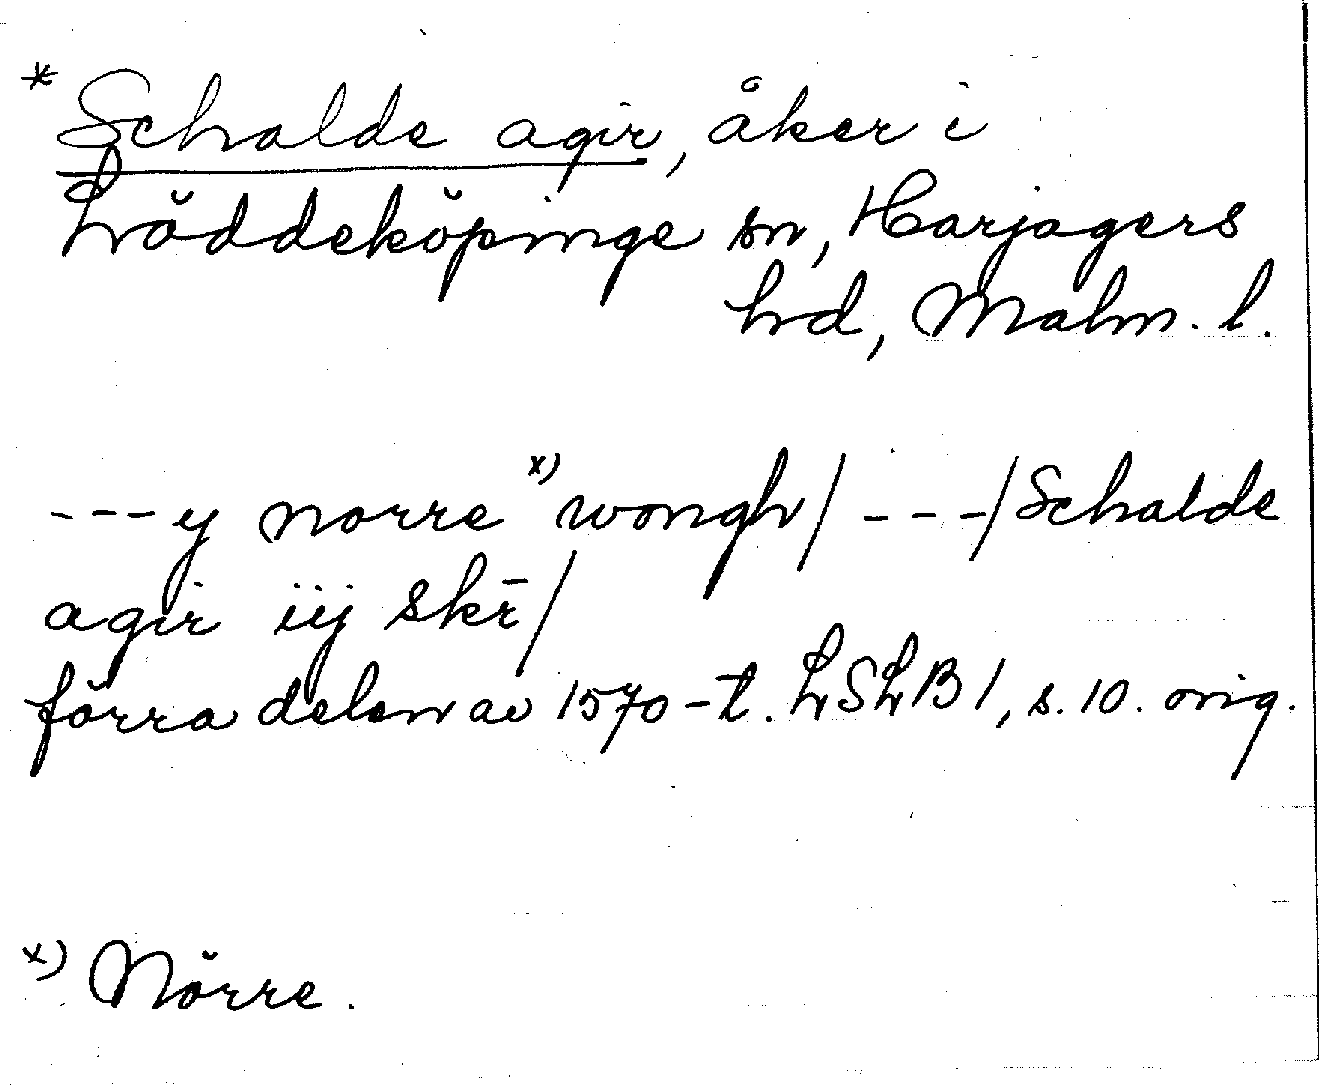 * Schalde agir, åker i
Löddeköpinge sn, Harjagers
hd, Malm. l.
---y norre x) wongh/ ---/Schalde
agir iij skr̄/
förra delen av 1570-t. LSLB 1, s. 10. orig.
x) Nörre.